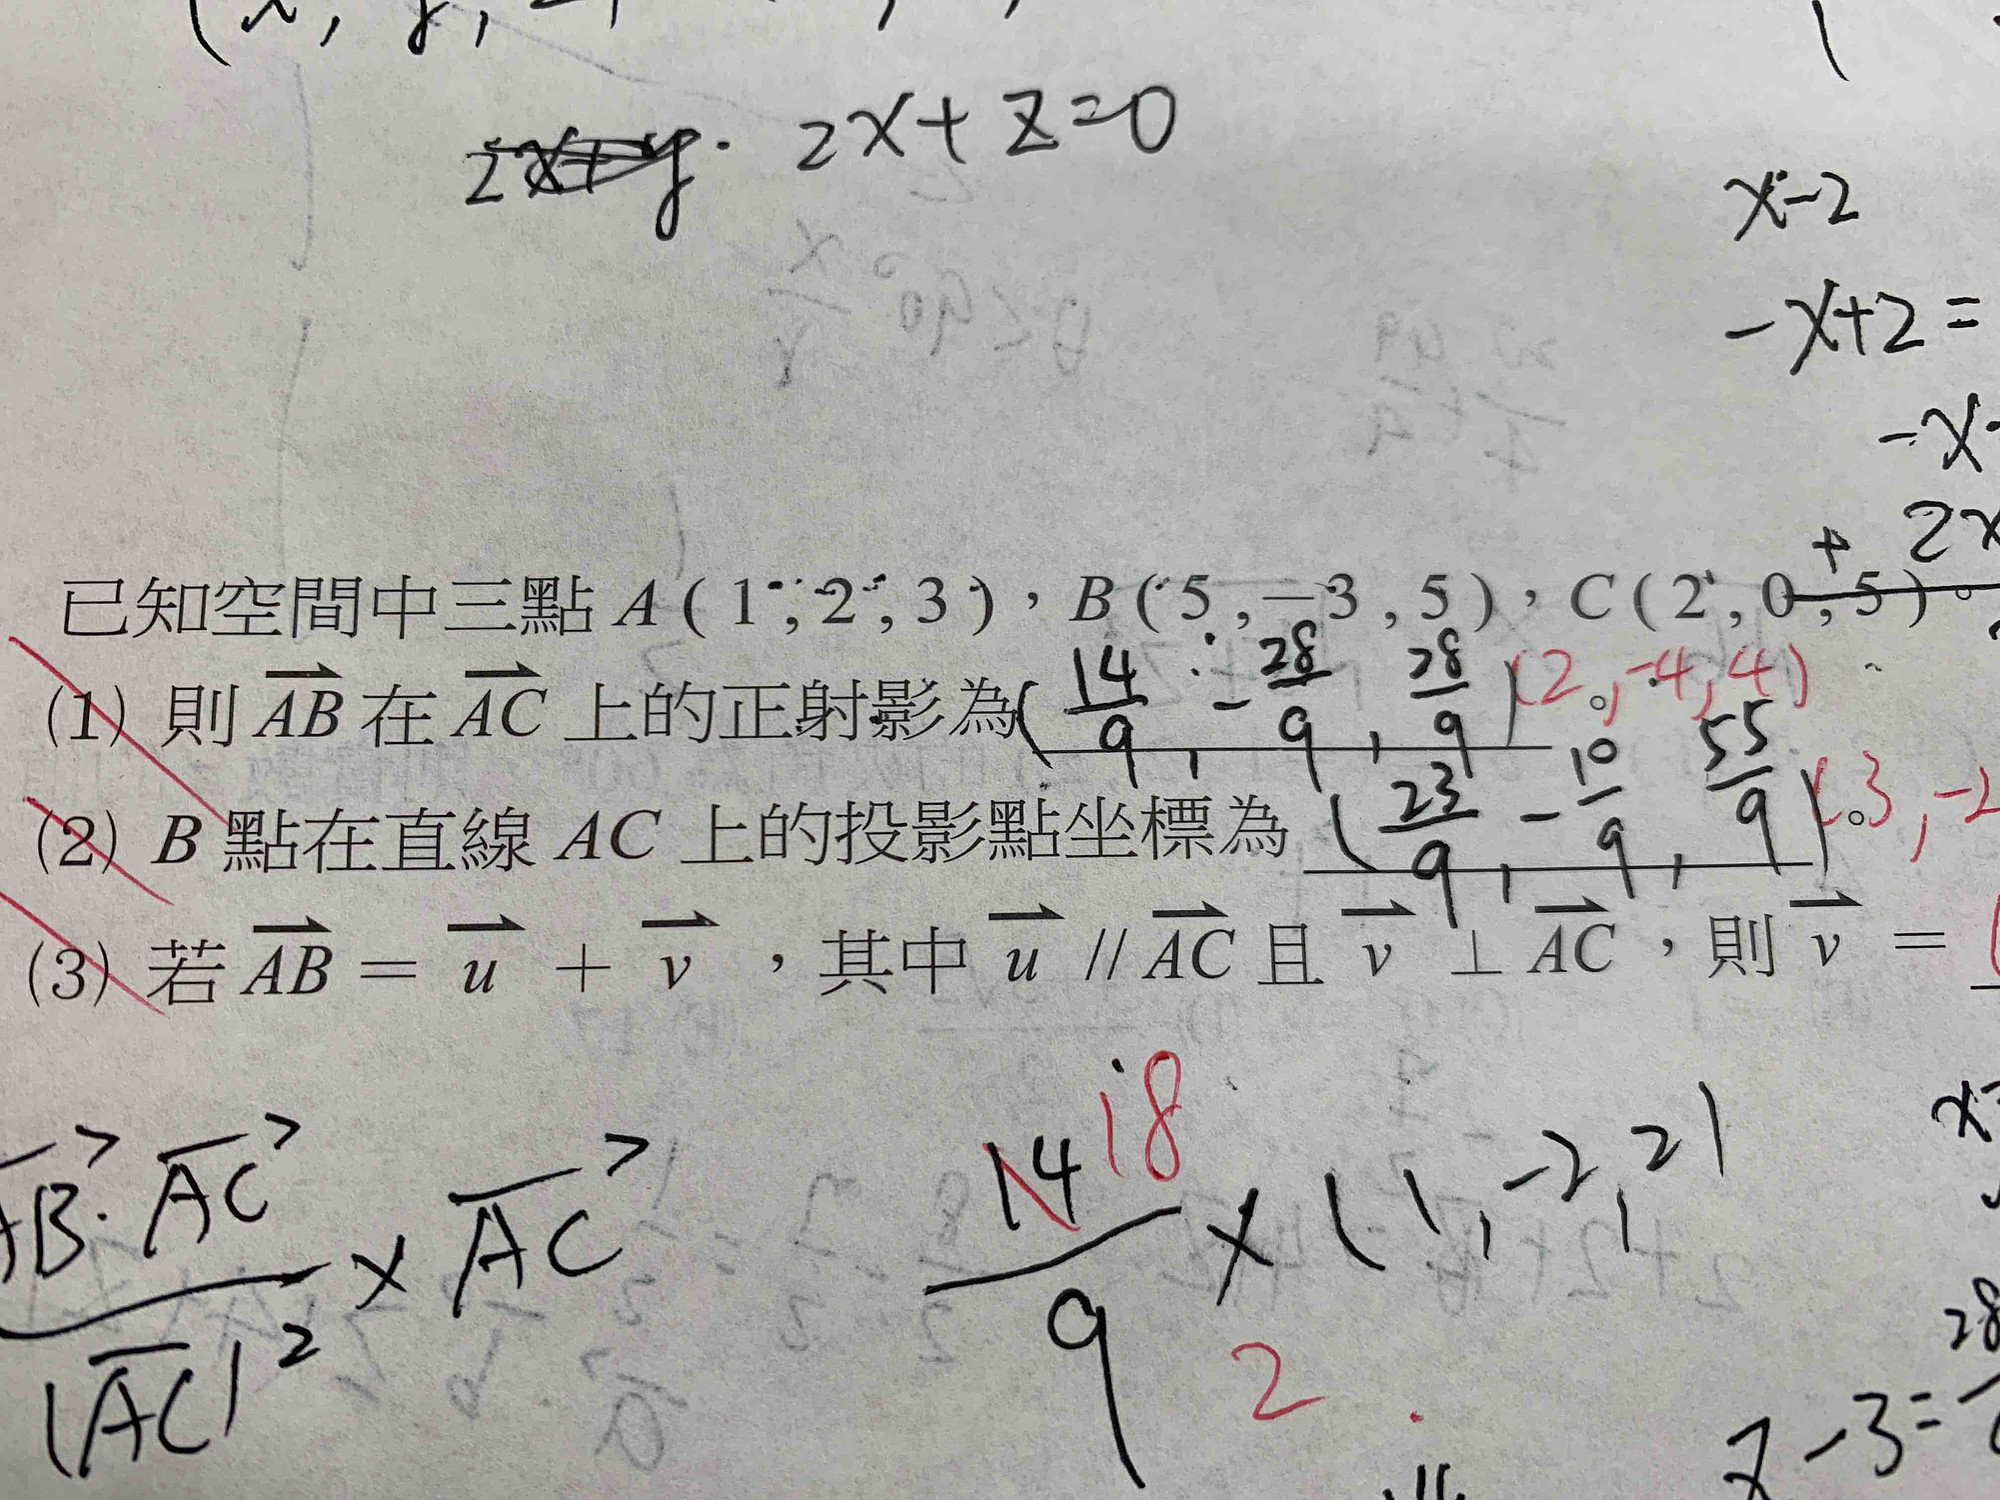 2x+z=0
x-2
-x+2=
-x
+ 2x
已知空間中三點 A ( 1 , 2 , 3 ) , B ( 5 , -3 , 5 ) , C ( 2 , 0 , 5 ) 。
(1) 則 AB 在 AC 上的正射影為 ( 14/9 , -28/9 , 28/9 ) 。 (2, -4, 4)
(2) B 點在直線 AC 上的投影點坐標為 ( 23/9 , -10/9 , 55/9 ) 。 (3, -2
(3) 若 AB = u + v , 其中 u // AC 且 v ⊥ AC , 則 v = (
AB · AC / |AC|² × AC
14 18 / 9 × (1, -2, 2)
2
28
z-3=